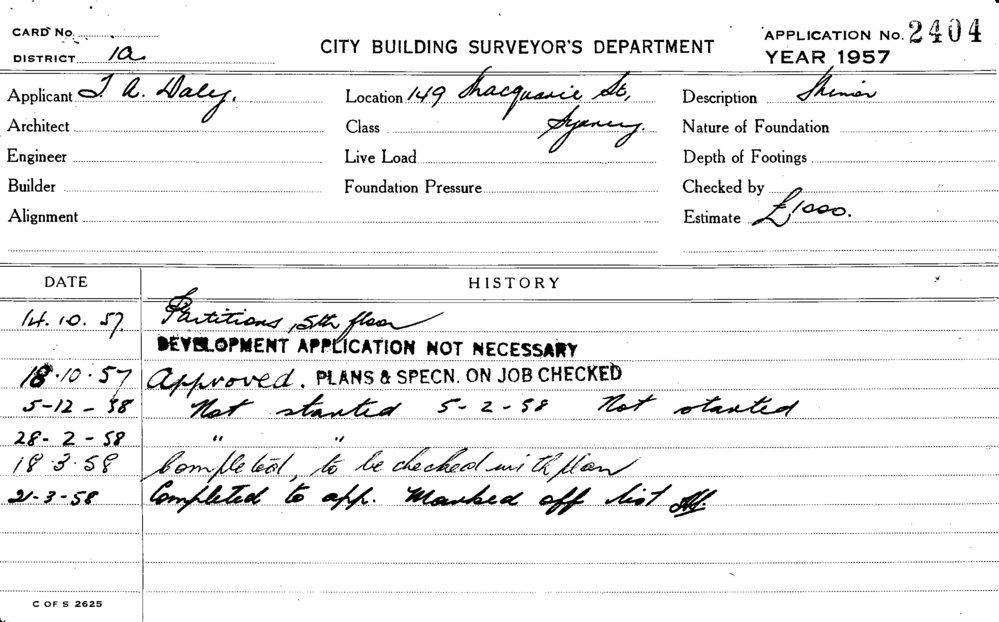 CARD No. APPLICATION No. 2404
DISTRICT 1a CITY BUILDING SURVEYOR'S DEPARTMENT YEAR 1957
Applicant T. A. Daley. Location 149 Macquarie St, Description
Architect Class Sydney. Nature of Foundation
Engineer Live Load Depth of Footings
Builder Foundation Pressure Checked by
Alignment Estimate £1000.
DATE HISTORY
14.10.57 Partitions, 5th floor
DEVELOPMENT APPLICATION NOT NECESSARY
18.10.57 Approved. PLANS & SPECN. ON JOB CHECKED
5-12-58 Not started 5-2-58 Not started
28-2-58 " "
18.3.58 Completed, to be checked with plan
21-3-58 Completed to app. Marked off list
C OF S 2625